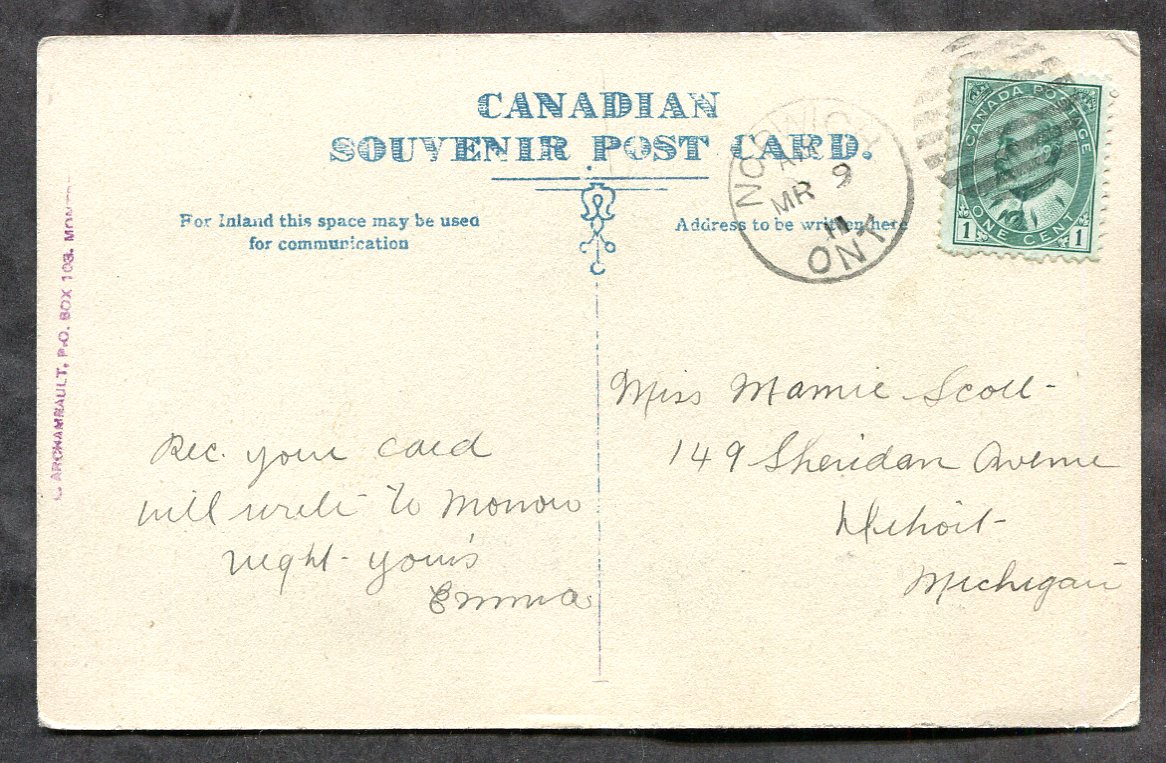 CANADIAN
SOUVENIR POST CARD.
For Inland this space may be used
for communication
Address to be written here
NORWICH
AM
MR 9
11
ONT
CANADA POSTAGE
1 ONE CENT 1
ARCHAMBAULT, P.O. BOX 103. MON
Rec. your card
will write to morrow
night - your's
Emma
Miss Mamie Scott -
149 Sheridan Avenue
Detroit -
Michigan